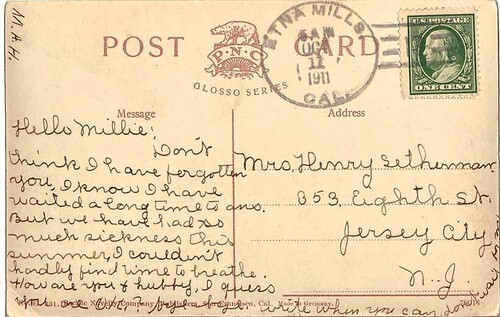 M.A.H.
POST CARD
P.N.C.
GLOSSO SERIES
ETNA MILLS
5 AM
OCT
11
1911
CAL.
U.S. POSTAGE
ONE CENT
Message
Address
Hello Millie;
Don't
think I have forgotten
you, I know I have
waited a long time to ans.
But we have had so
much sickness this
summer, I couldn't
hardly find time to breathe.
How are you & hubby, I guess
write when you can, don't wait
Mrs. Henry Setherman
353 Eighth St.
Jersey City
N. J.
Novelty Company, Publishers, San Francisco, Cal. Made in Germany.